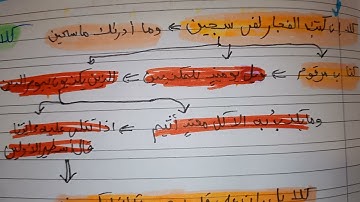 كلا إن كتب الفجار لفي سجين ← وما أدرىك ما سجين كلا
كتاب مرقوم ← ويل يومئذ للمكذبين ← الذين يكذبون بيوم الدين
وما يكذب به إلا كل معتد أثيم ← إذا تتلى عليه ءايتنا
قال أسطير الأولين
كلا بل ران على قلوبهم